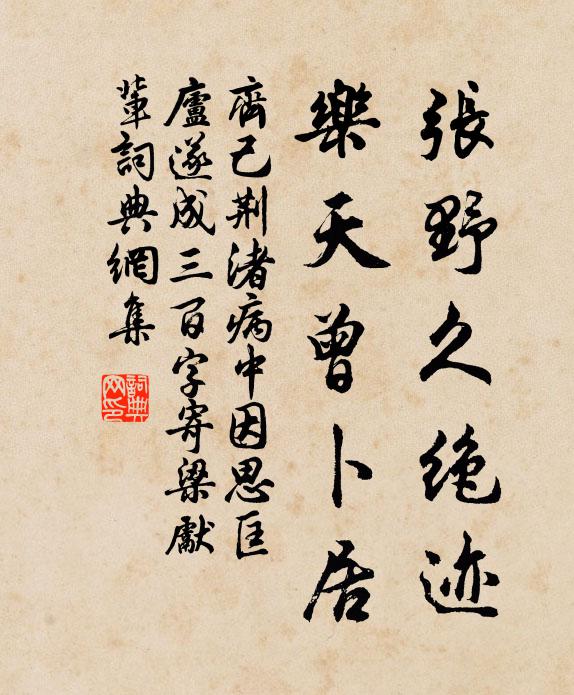 張野久绝迹
樂天曾卜居
齊己荆渚病中因思匡
廬遂成三百字寄梁獻
輩詞典網集
詞典网印